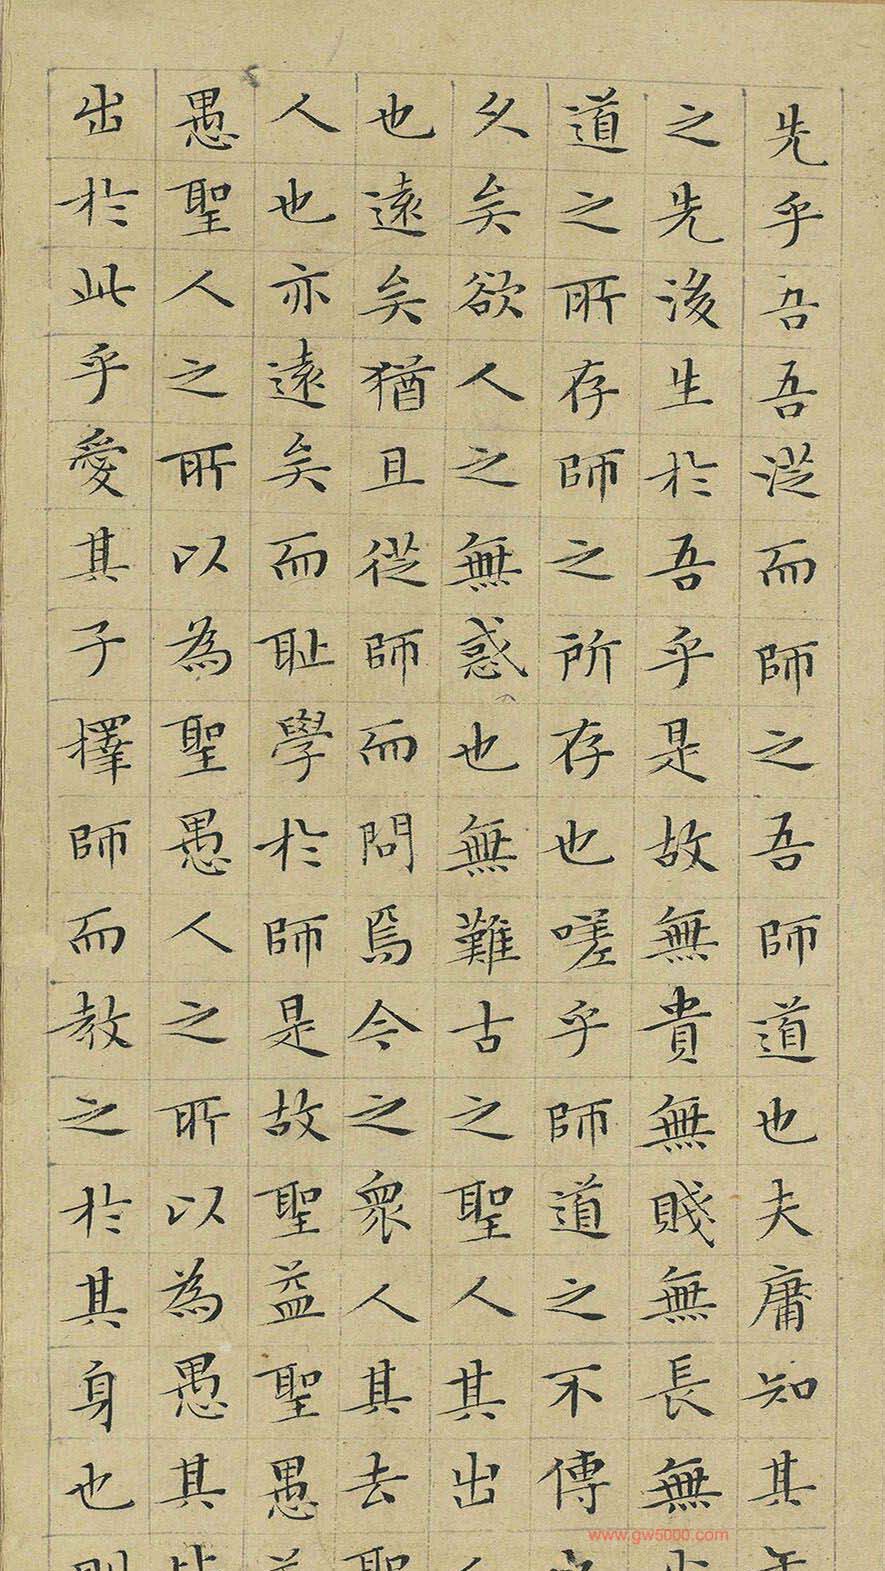 先乎吾吾從而師之吾師道也夫庸知其
之先後生於吾乎是故無貴無賤無長無
道之所存師之所存也嗟乎師道之不傳
久矣欲人之無惑也無難古之聖人其出
也遠矣猶且從師而問焉今之眾人其去
人也亦遠矣而耻學於師是故聖益聖愚
愚聖人之所以為聖愚人之所以為愚其
出於此乎愛其子擇師而教之於其身也
www.gw5000.com